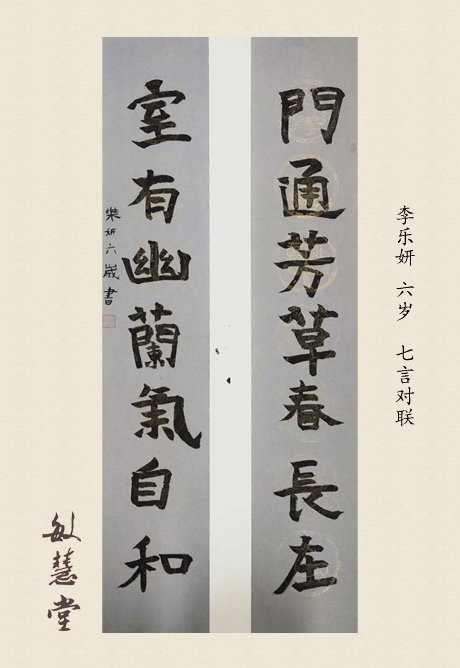 李乐妍 六岁 七言对联
門通芳草春長在
室有幽蘭氣自和
樂妍六歲書
敏慧堂